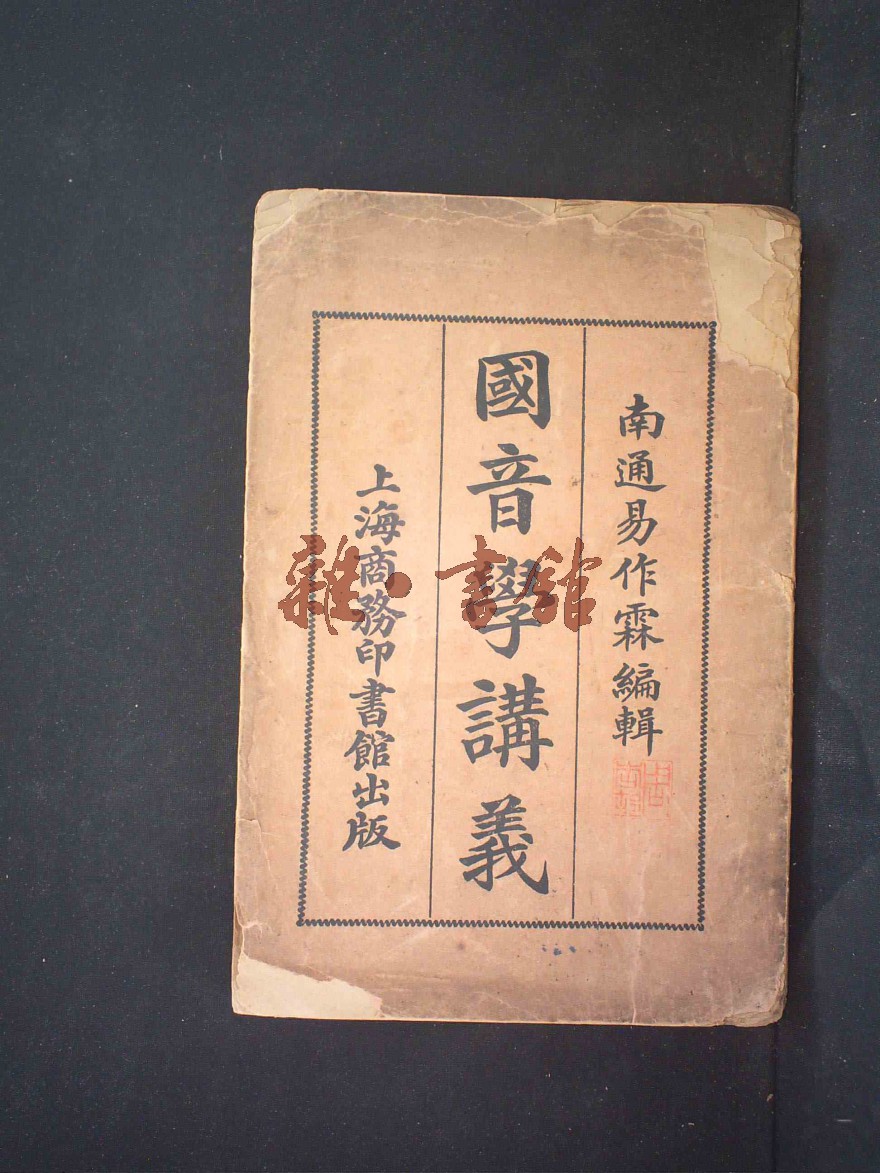 南通易作霖編輯
國音學講義
上海商務印書館出版
雜·書館